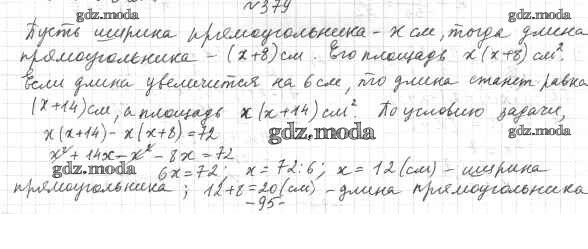 №379
gdz.moda gdz.moda
Пусть ширина прямоугольника - x см, тогда длина
прямоугольника - (x+8) см. Его площадь x(x+8) см².
Если длина увеличится на 6 см, то длина станет равна
(x+14) см, а площадь x(x+14) см². По условию задачи,
gdz.moda gdz.moda gdz.moda
x(x+14) - x(x+8) = 72
x² + 14x - x² - 8x = 72
gdz.moda gdz.moda
6x = 72; x = 72:6; x = 12 (см) - ширина
прямоугольника; 12+8=20 (см) - длина прямоугольника
-95-